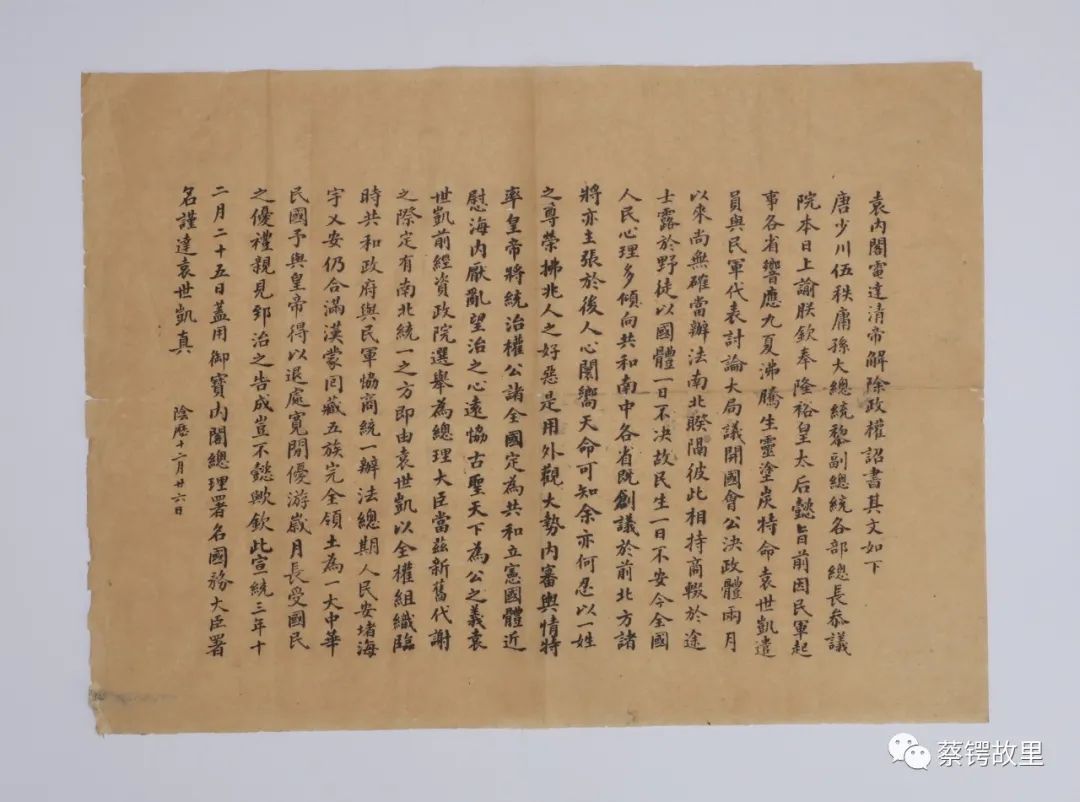 袁內閣電達清帝解除政權詔書其文如下
唐少川伍秩庸孫大總統黎副總統各部總長叅議
院本日上諭朕欽奉隆裕皇太后懿旨前因民軍起
事各省響應九夏沸騰生靈塗炭特命袁世凱遣
員與民軍代表討論大局議開國會公決政體兩月
以來尚無確當辦法南北睽隔彼此相持商輟於途
士露於野徒以國體一日不決故民生一日不安今全國
人民心理多傾向共和南中各省既創議於前北方諸
將亦主張於後人心所嚮天命可知余亦何忍以一姓
之尊榮拂兆人之好惡是用外觀大勢內審輿情特
率皇帝將統治權公諸全國定為共和立憲國體近
慰海內厭亂望治之心遠協古聖天下為公之義袁
世凱前經資政院選舉為總理大臣當茲新舊代謝
之際定有南北統一之方即由袁世凱以全權組織臨
時共和政府與民軍協商統一辦法總期人民安堵海
宇乂安仍合滿漢蒙回藏五族完全領土為一大中華
民國予與皇帝得以退處寬閒優游歲月長受國民
之優禮親見郅治之告成豈不懿歟欽此宣統三年十
二月二十五日蓋用御寶內閣總理署名國務大臣署
名謹達袁世凱真
陰曆十二月廿六日
蔡锷故里